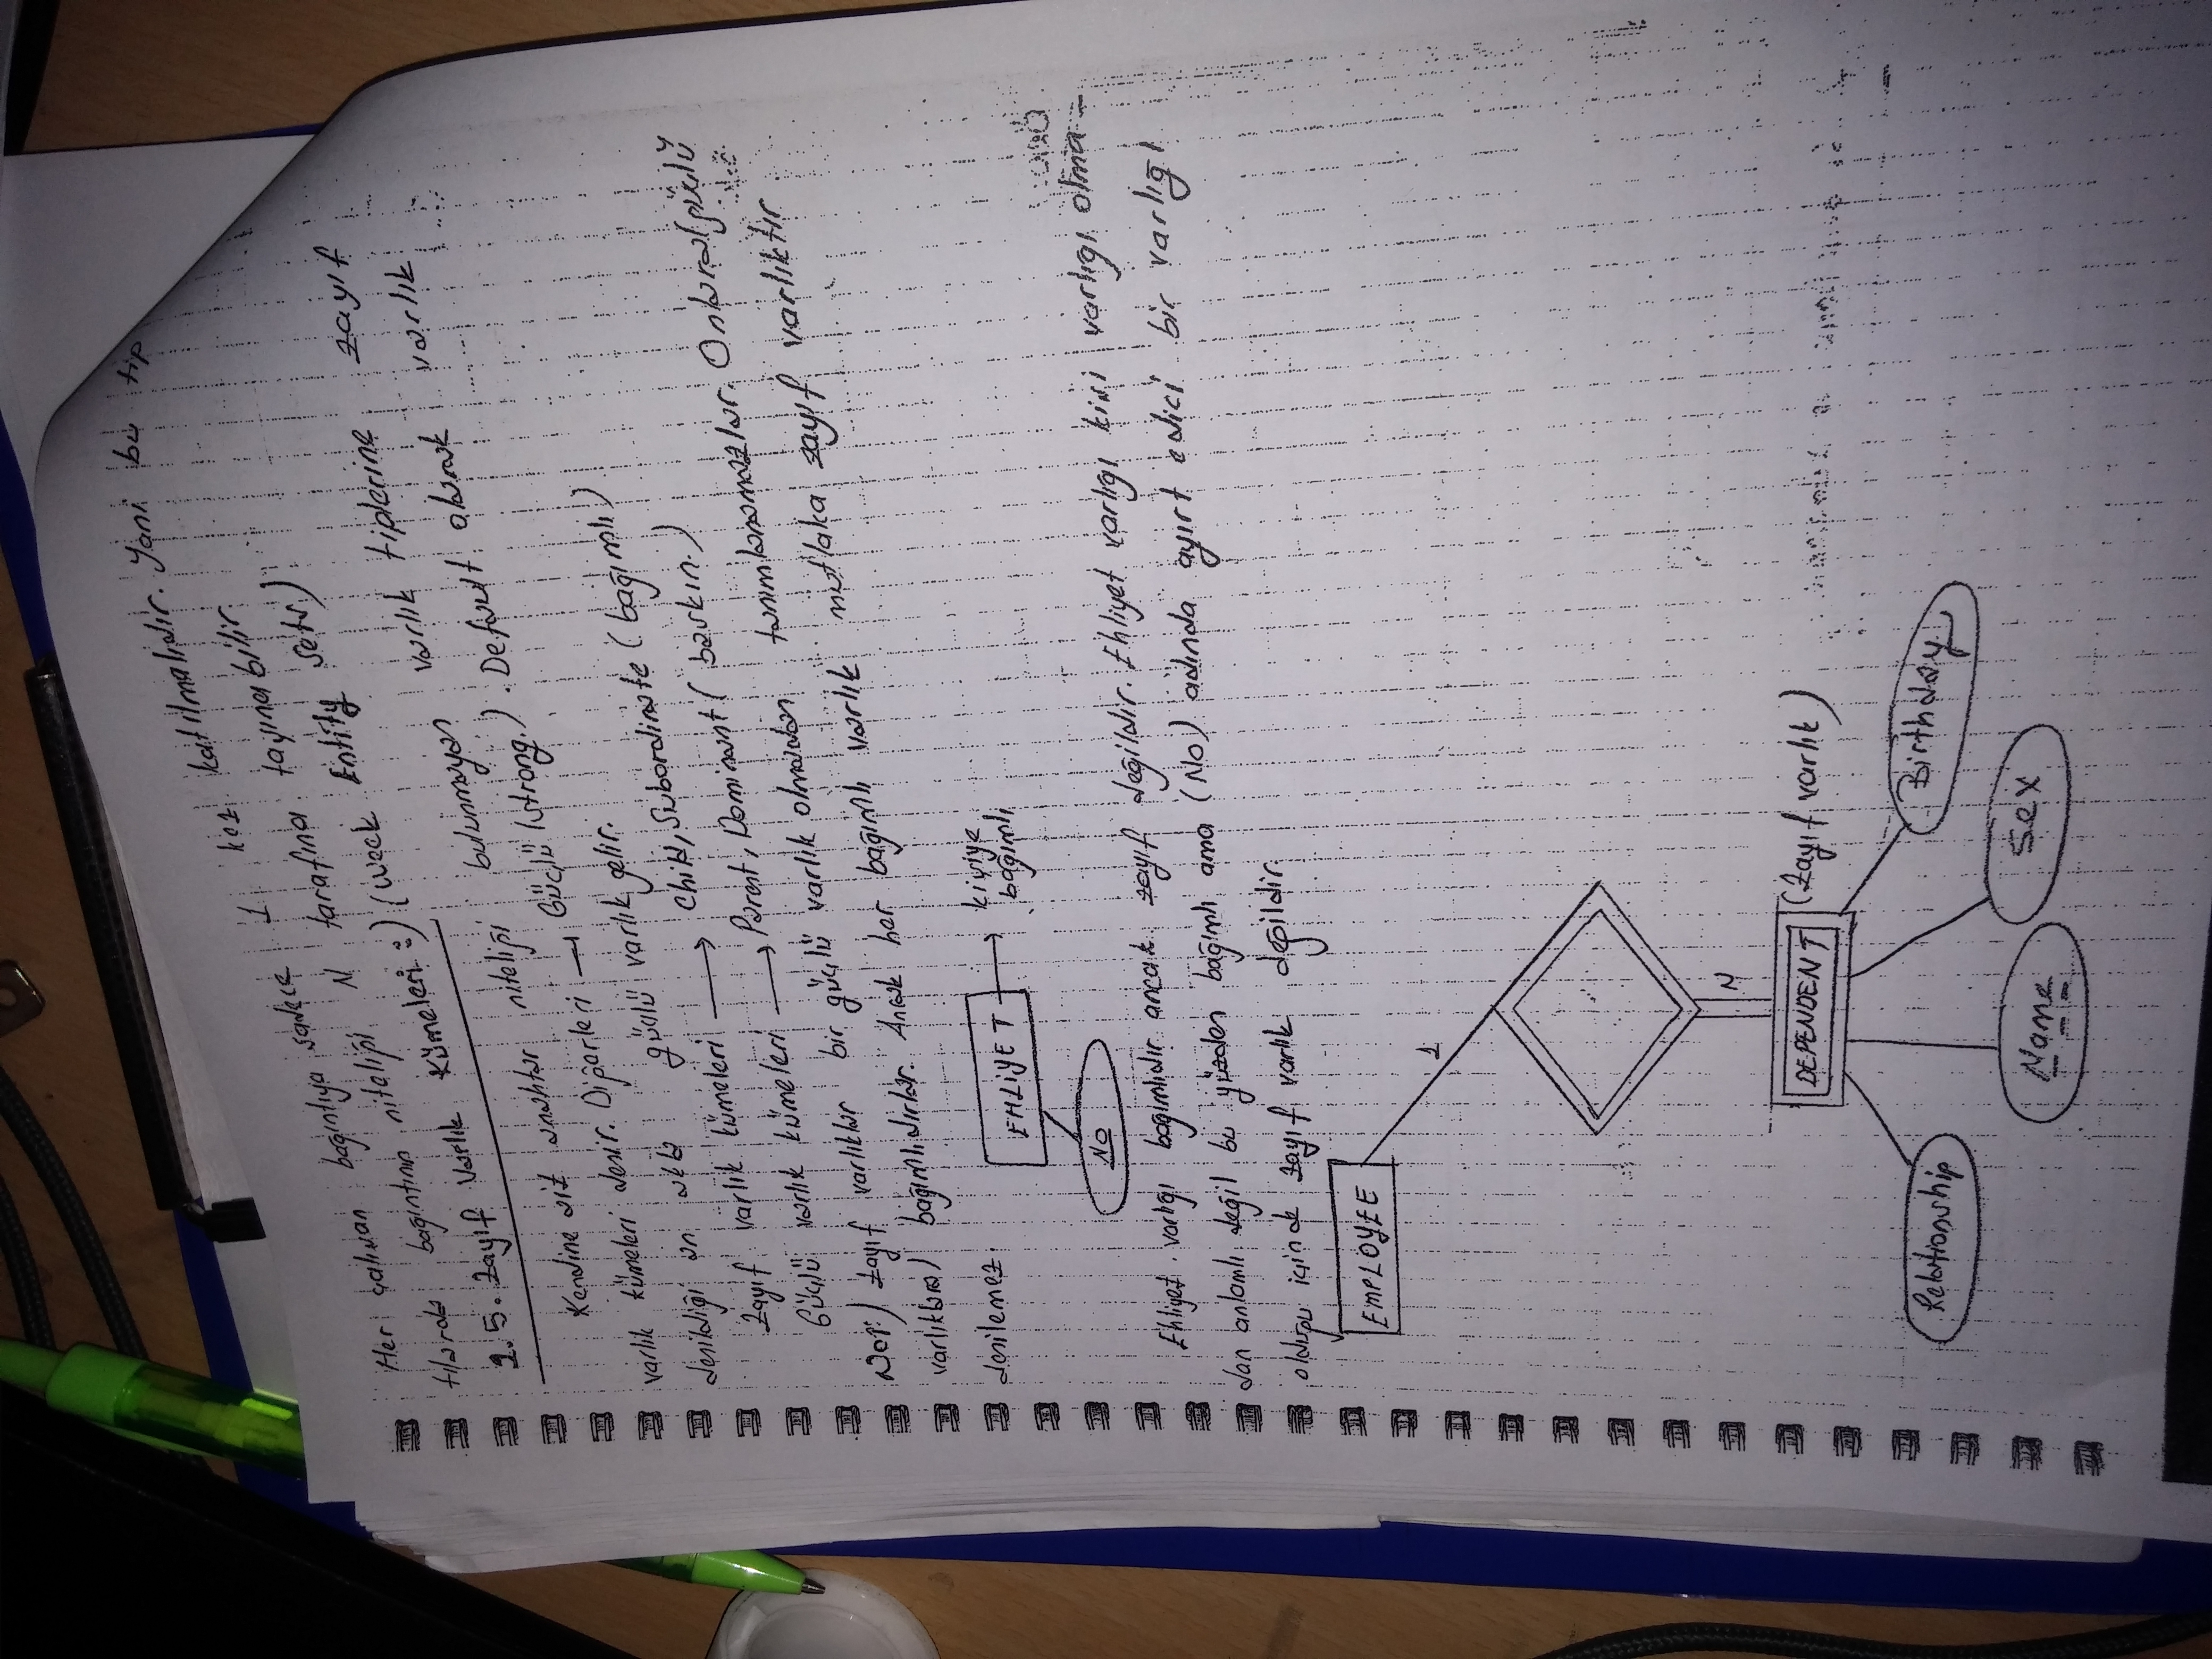 Her çalışan bağıntıya sadece 1 kez katılmalıdır. Yani bu tip
bağıntının niteliği N tarafına taşınabilir.
2.5. Zayıf Varlık Kümeleri :) (Weak Entity Sets)
Kendine ait anahtar niteliği bulunmayan varlık tiplerine zayıf
varlık kümeleri denir. Diğerleri → Güçlü (strong.). Default olarak varlık
denildiği an akla güçlü varlık gelir.
Zayıf varlık kümeleri → Child, Subordinate (bağımlı)
Güçlü varlık kümeleri → Parent, Dominant (baskın.)
Not:) Zayıf varlıklar bir güçlü varlık olmadan tanımlanamazlar. Onlara(güçlü
varlıklara) bağımlıdırlar. Ancak her bağımlı varlık mutlaka zayıf varlıktır
denilemez.
EHLİYET → kişiye bağımlı
No
Ehliyet varlığı bağımlıdır ancak zayıf değildir. Ehliyet varlığı kişi varlığı olma-
dan anlamlı değil bu yüzden bağımlı ama (No) adında ayırt edici bir varlığı
olduğu için de zayıf varlık değildir.
EMPLOYEE
1
N
DEPENDENT (Zayıf varlık)
Relationship
Name
Sex
Birthday